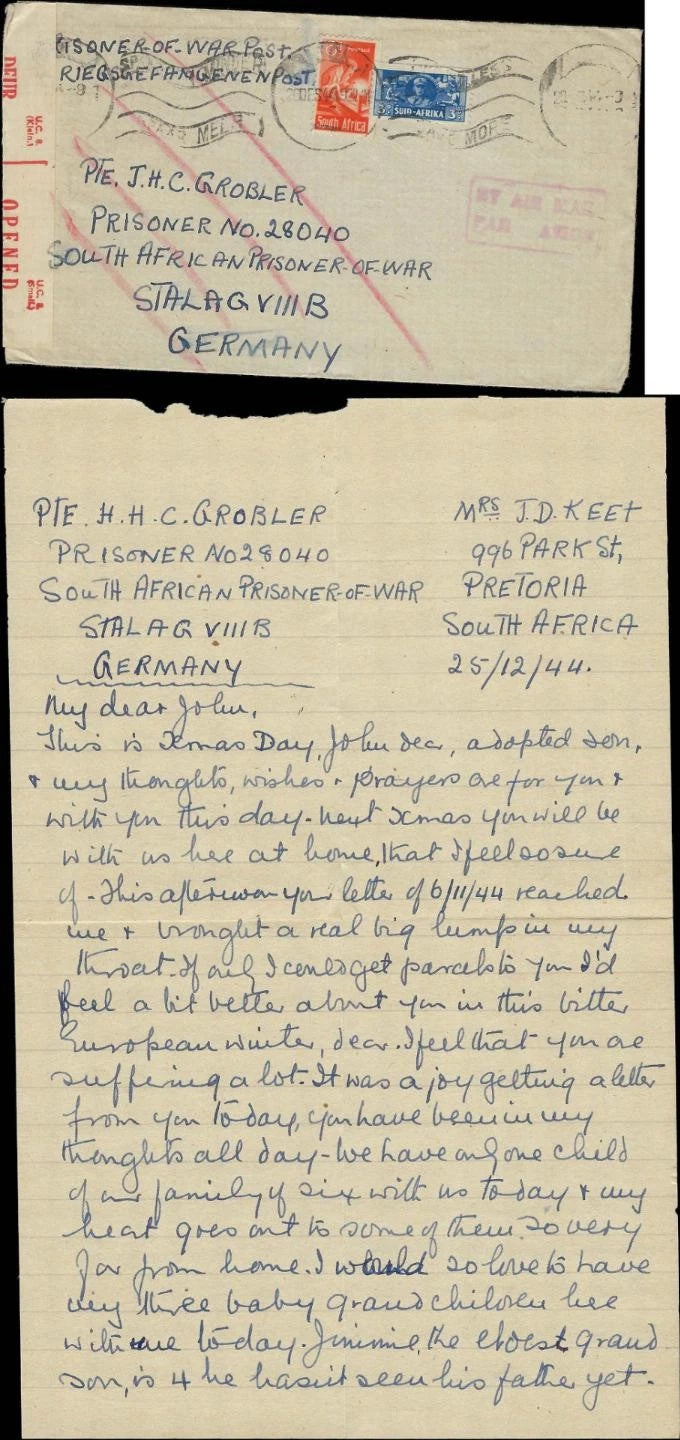 PRISONER-OF-WAR POST
KRIEGSGEFANGENENPOST
U.C. 8.
(Klein.)
OPENED
U.C. 8.
(Small.)
South Africa
SUID-AFRIKA
3D 3D
BY AIR MAIL
PAR AVION
PTE. J.H.C. GROBLER
PRISONER NO. 28040
SOUTH AFRICAN PRISONER-OF-WAR
STALAG VIIIB
GERMANY
PTE. H.H.C. GROBLER
PRISONER NO 28040
SOUTH AFRICAN PRISONER-OF-WAR
STALAG VIIIB
GERMANY
MRS J.D. KEET
996 PARK St,
PRETORIA
SOUTH AFRICA
25/12/44.
My dear John,
This is Xmas Day, John dear, adopted son,
+ my thoughts, wishes + prayers are for you +
with you this day - next Xmas you will be
with us here at home, that I feel so sure
of - This afternoon your letter of 6/11/44 reached
me + brought a real big lump in my
throat. If only I could get parcels to you I'd
feel a bit better about you in this bitter
European winter, dear. I feel that you are
suffering a lot. It was a joy getting a letter
from you today, you have been in my
thoughts all day - We have only one child
of our family of six with us today + my
heart goes out to some of them so very
far from home. I would so love to have
my three baby grandchildren here
with me today. Jimmie, the eldest grand
son, is 4 he hasn't seen his father yet.